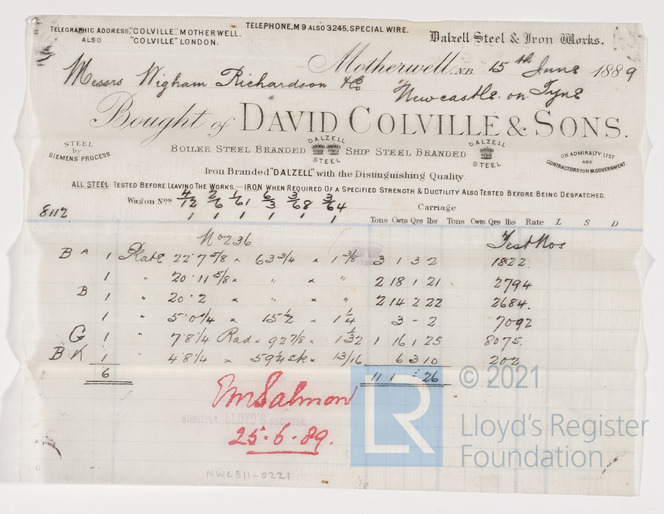 TELEGRAPHIC ADDRESS, "COLVILLE", MOTHERWELL.
ALSO "COLVILLE" LONDON.
TELEPHONE, M9 ALSO 3245, SPECIAL WIRE.
Dalzell Steel & Iron Works.
Motherwell, N.B. 15th June 1889
Messrs Wigham Richardson & Co
Newcastle on Tyne
Bought of DAVID COLVILLE & SONS.
STEEL
by
SIEMENS PROCESS
BOILER STEEL BRANDED DALZELL STEEL SHIP STEEL BRANDED DALZELL STEEL
ON ADMIRALTY LIST
AND
CONTRACTORS TO H.M. GOVERNMENT.
Iron Branded "DALZELL" with the Distinguishing Quality.
ALL STEEL TESTED BEFORE LEAVING THE WORKS. IRON WHEN REQUIRED OF A SPECIFIED STRENGTH & DUCTILITY ALSO TESTED BEFORE BEING DESPATCHED.
Wagon Nos
Carriage
8112 1 1 1 1 1 1
Tons Cwts Qrs lbs Tons Cwts Qrs lbs Rate L S D
No 236 Test Nos
B A 1 Plate 22·7 5/8 × 63 3/4 × 1 3/8 3 1 3 2 1822
1 " 20·11 5/8 " " " 2 18 1 21 2794
B 1 " 20·2 " " " 2 14 2 22 2684
1 " 5·0 1/4 × 15 1/2 × 1 1/4 3 - 2 7092
G 1 " 7·8 1/4 Rad × 92 7/8 × 1 1/32 1 16 1 25 8075
B K 1 " 4·8 1/4 × 59 1/2 × 13/16 6 3 10 202
6 11 1 26
Salmon
LLOYD'S REGISTER
25·6·89.
NWC811-0221
LR
© 2021
Lloyd's Register
Foundation